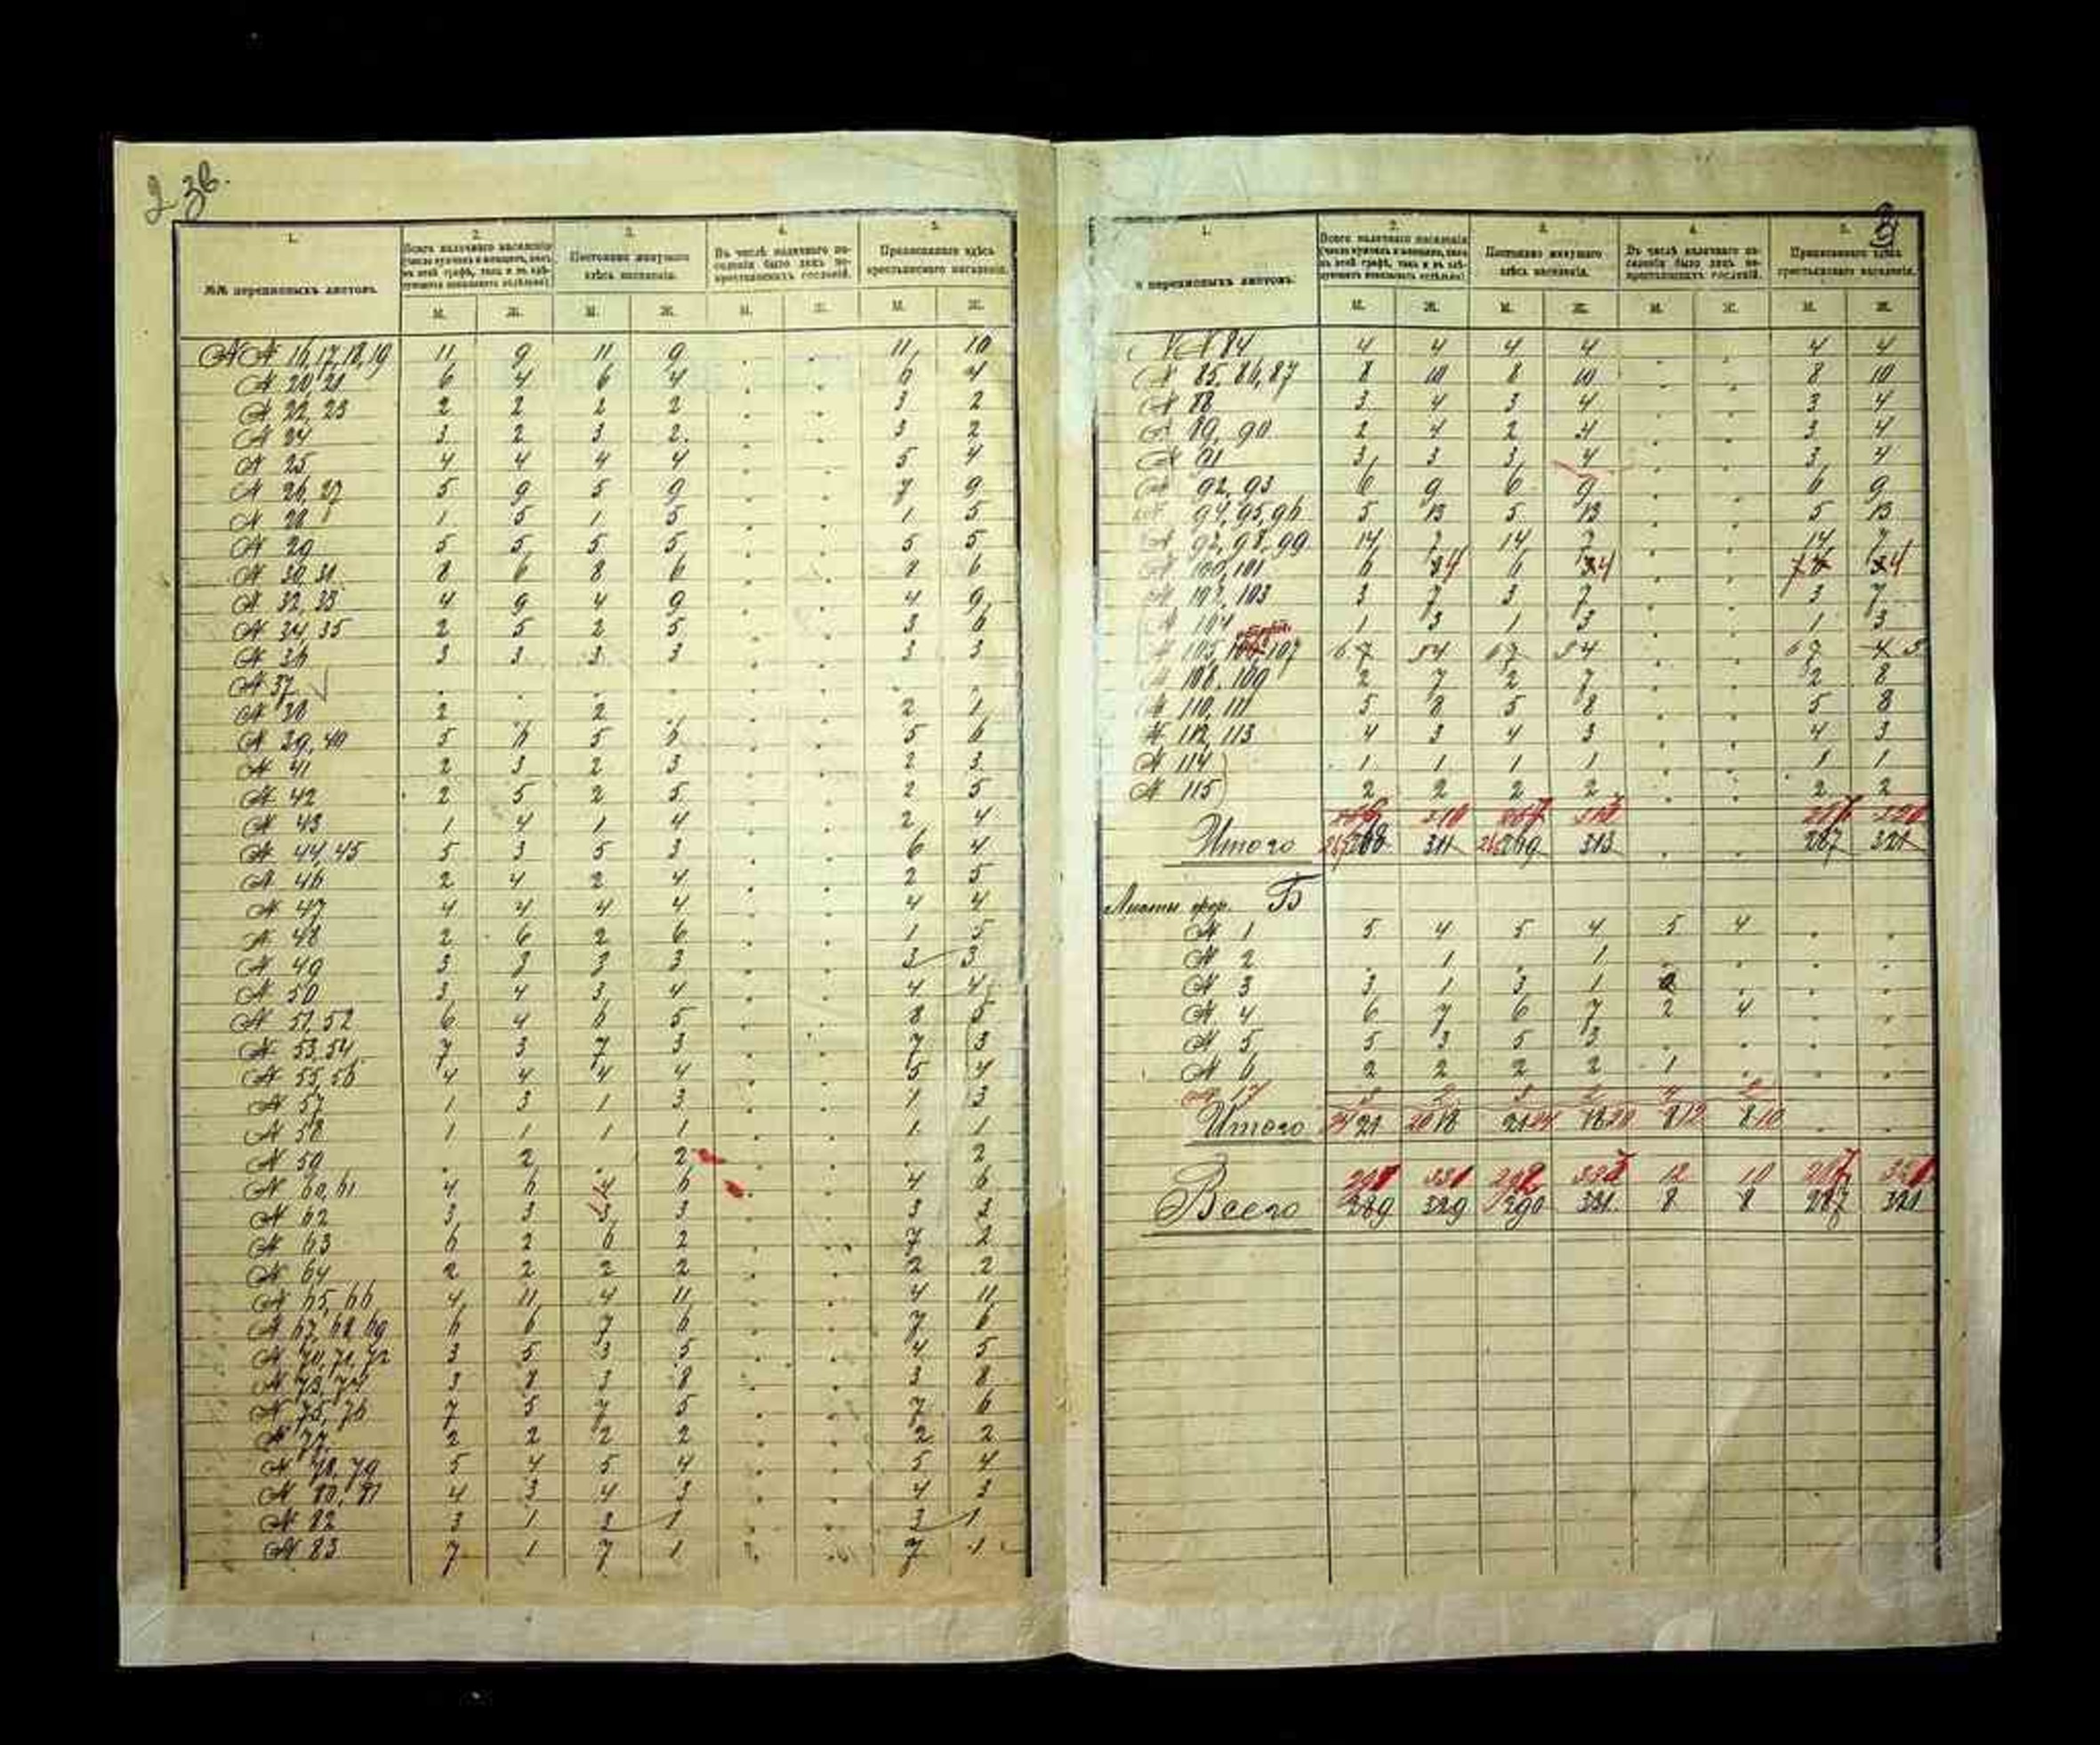 2 зв.
1. 2. 3. 4. 5.
№№ переписныхъ листовъ.
Всего наличнаго населенія
Постоянно живущаго здѣсь населенія.
Въ числѣ наличнаго населенія было лицъ некрестьянскихъ сословій.
Приписаннаго здѣсь крестьянскаго населенія.
М. Ж. М. Ж. М. Ж. М. Ж.
№№ 16,17,18,19 11 9 11 9 . . 11 10
№ 20,21 6 4 6 4 . . 6 4
№ 22,23 2 2 2 2 . . 3 2
№ 24 3 2 3 2 . . 3 2
№ 25 4 4 4 4 . . 5 4
№ 26,27 5 9 5 9 . . 7 9
№ 28 1 5 1 5 . . 1 5
№ 29 5 5 5 5 . . 5 5
№ 30,31 8 6 8 6 . . 8 6
№ 32,33 4 9 4 9 . . 4 9
№ 34,35 2 5 2 5 . . 3 6
№ 36 3 3 3 3 . . 3 3
№ 37 . . . . . .
№ 38 2 . 2 . . . 2 1
№ 39,40 5 6 5 6 . . 5 6
№ 41 2 3 2 3 . . 2 3
№ 42 2 5 2 5 . . 2 5
№ 43 1 4 1 4 . . 2 4
№ 44,45 5 3 5 3 . . 6 4
№ 46 2 4 2 4 . . 2 5
№ 47 4 4 4 4 . . 4 4
№ 48 2 6 2 6 . . 1 5
№ 49 3 3 3 3 . . 3 3
№ 50 3 4 3 4 . . 4 4
№ 51,52 6 4 6 5 . . 8 5
№ 53,54 7 3 7 3 . . 7 3
№ 55,56 4 4 4 4 . . 5 4
№ 57 1 3 1 3 . . 1 3
№ 58 1 1 1 1 . . 1 1
№ 59 . 2 . 2 . . . 2
№ 60,61 4 6 4 6 . . 4 6
№ 62 3 3 3 3 . . 3 3
№ 63 6 2 6 2 . . 7 2
№ 64 2 2 2 2 . . 2 2
№ 65,66 4 11 4 11 . . 4 11
№ 67,68,69 6 6 7 6 . . 7 6
№ 70,71,72 3 5 3 5 . . 4 5
№ 73,74 3 8 3 8 . . 3 8
№ 75,76 7 5 7 5 . . 7 6
№ 77 2 2 2 2 . . 2 2
№ 78,79 5 4 5 4 . . 5 4
№ 80,81 4 3 4 3 . . 4 3
№ 82 3 1 3 1 . . 3 1
№ 83 7 1 7 1 . . 7 1
3
1. 2. 3. 4. 5.
переписныхъ листовъ.
Всего наличнаго населенія
Постоянно живущаго здѣсь населенія.
Въ числѣ наличнаго населенія было лицъ некрестьянскихъ сословій.
Приписаннаго здѣсь крестьянскаго населенія.
М. Ж. М. Ж. М. Ж. М. Ж.
№№ 84 4 4 4 4 . . 4 4
№ 85,86,87 8 10 8 10 . . 8 10
№ 88 3 4 3 4 . . 3 4
№ 89,90 2 4 2 4 . . 3 4
№ 91 3 3 3 4 . . 3 4
№ 92,93 6 9 6 9 . . 6 9
№ 94,95,96 5 13 5 13 . . 5 13
№ 97,98,99 14 7 14 7 . . 14 7
№ 100,101 6 4 6 4 . . 7 4
№ 102,103 3 7 3 7 . . 3 7
№ 104 1 3 1 3 . . 1 3
№ 105,106,107 . .
№ 108,109 2 7 2 7 . . 2 8
№ 110,111 5 8 5 8 . . 5 8
№ 112,113 4 3 4 3 . . 4 3
№ 114 1 1 1 1 . . 1 1
№ 115 2 2 2 2 . . 2 2
Итого 268 311 269 313 . . 287 321
Листы фор. Б
№ 1 5 4 5 4 5 4 . .
№ 2 . 1 . 1 . . . .
№ 3 3 1 3 1 . . .
№ 4 6 7 6 7 2 4 . .
№ 5 5 3 5 3 . . . .
№ 6 2 2 2 2 1 . . .
№ 17 3 2 3 2 4 2
Итого 24 21 20 18 21 24 18 20 8 12 8 10 . .
331 12 10
Всего 289 329 290 331 8 8 287 321